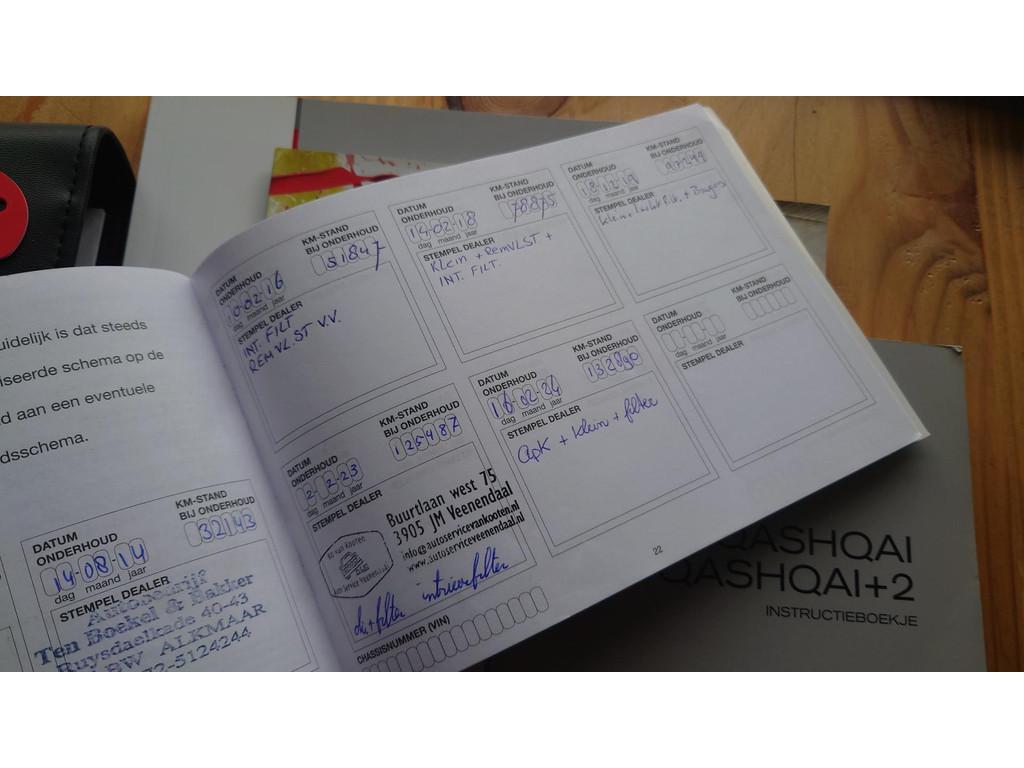 uidelijk is dat steeds
iseerde schema op de
d aan een eventuele
dsschema.
DATUM ONDERHOUD
KM-STAND BIJ ONDERHOUD
14-08-14
32143
dag maand jaar
STEMPEL DEALER
Autobedrijf
Ten Boekel & Bakker
Ruysdaelkade 40-43
BW ALKMAAR
72-5124244
DATUM ONDERHOUD
KM-STAND BIJ ONDERHOUD
0-02-16
51847
dag maand jaar
STEMPEL DEALER
INT. FILT
REMVLST V.V.
DATUM ONDERHOUD
KM-STAND BIJ ONDERHOUD
14-02-18
78875
dag maand jaar
STEMPEL DEALER
Klein + REMVLST +
INT. FILT.
DATUM ONDERHOUD
KM-STAND BIJ ONDERHOUD
18-12-19
97244
dag maand jaar
STEMPEL DEALER
Klein +
DATUM ONDERHOUD
KM-STAND BIJ ONDERHOUD
2-2-23
125487
dag maand jaar
STEMPEL DEALER
Buurtlaan west 75
3905 JM Veenendaal
info@autoservicevankooten.nl
www.autoserviceveenendaal.nl
olie + filter intrieurfilter
DATUM ONDERHOUD
KM-STAND BIJ ONDERHOUD
16-02-24
132890
dag maand jaar
STEMPEL DEALER
apk + klein + filter
DATUM ONDERHOUD
KM-STAND BIJ ONDERHOUD
dag maand jaar
STEMPEL DEALER
CHASSISNUMMER (VIN)
22
QASHQAI
QASHQAI+2
INSTRUCTIEBOEKJE